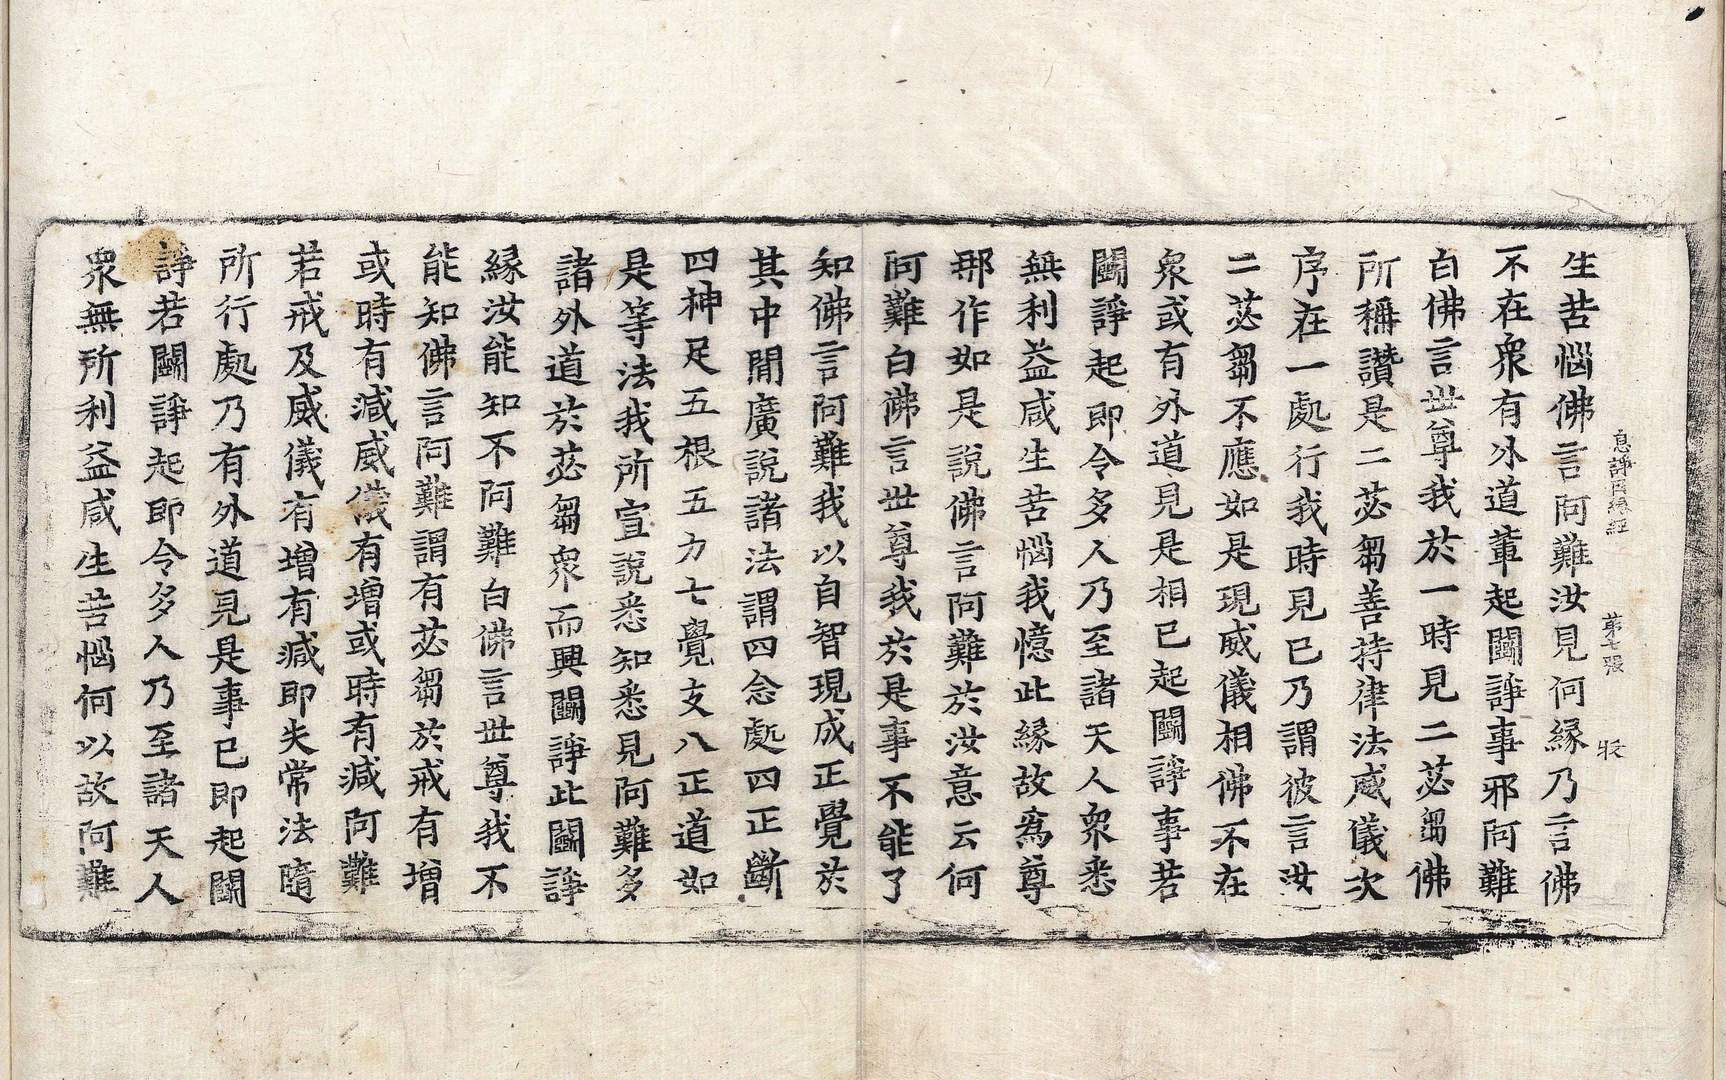 息諍因緣經 第七張
生苦惱佛言阿難汝見何緣乃言佛
不在衆有外道輩起鬭諍事邪阿難
白佛言世尊我於一時見二苾芻佛
所稱讚是二苾芻善持律法威儀次
序在一處行我時見已乃謂彼言汝
二苾芻不應如是現威儀相佛不在
衆或有外道見是相已起鬭諍事若
鬭諍起即令多人乃至諸天人衆悉
無利益咸生苦惱我憶此緣故爲尊
那作如是說佛言阿難於汝意云何
阿難白佛言世尊我於是事不能了
知佛言阿難我以自智現成正覺於
其中間廣說諸法謂四念處四正斷
四神足五根五力七覺支八正道如
是等法我所宣說悉知悉見阿難多
諸外道於苾芻衆而興鬭諍此鬭諍
緣汝能知不阿難白佛言世尊我不
能知佛言阿難謂有苾芻於戒有增
或時有減威儀有增或時有減阿難
若戒及威儀有增有減即失常法隨
所行處乃有外道見是事已即起鬭
諍若鬭諍起即令多人乃至諸天人
衆無所利益咸生苦惱何以故阿難